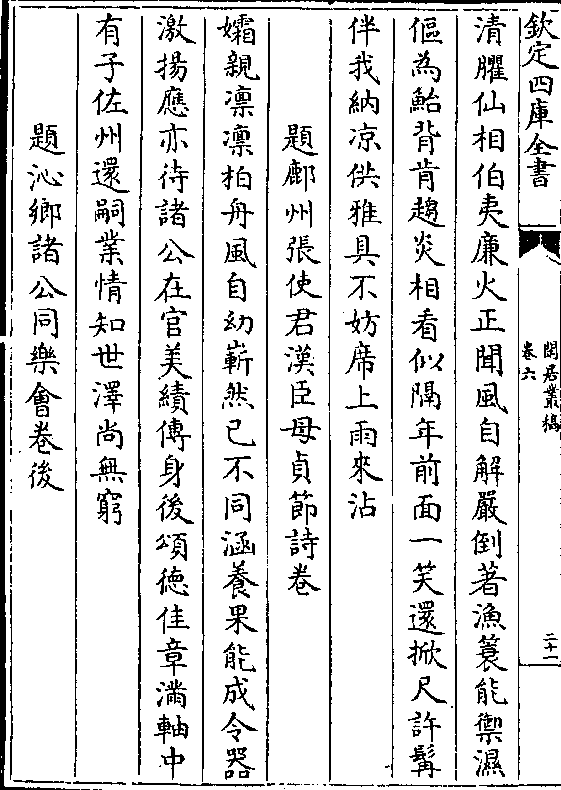 欽定四庫全書
閒居叢稿
卷六
二十一
清臞仙相伯夷廉火正聞風自解嚴倒著漁簑能禦濕
傴為鮐背肯趨炎相看似隔年前面一笑還掀尺許髯
伴我納凉供雅具不妨席上雨來沾
題鄜州張使君漢臣母貞節詩卷
孀親凛凛柏舟風自幼嶄然已不同涵養果能成令器
激揚應亦待諸公在官美績傳身後頌徳佳章滿軸中
有子佐州還嗣業情知世澤尚無窮
題沁鄉諸公同樂會卷後